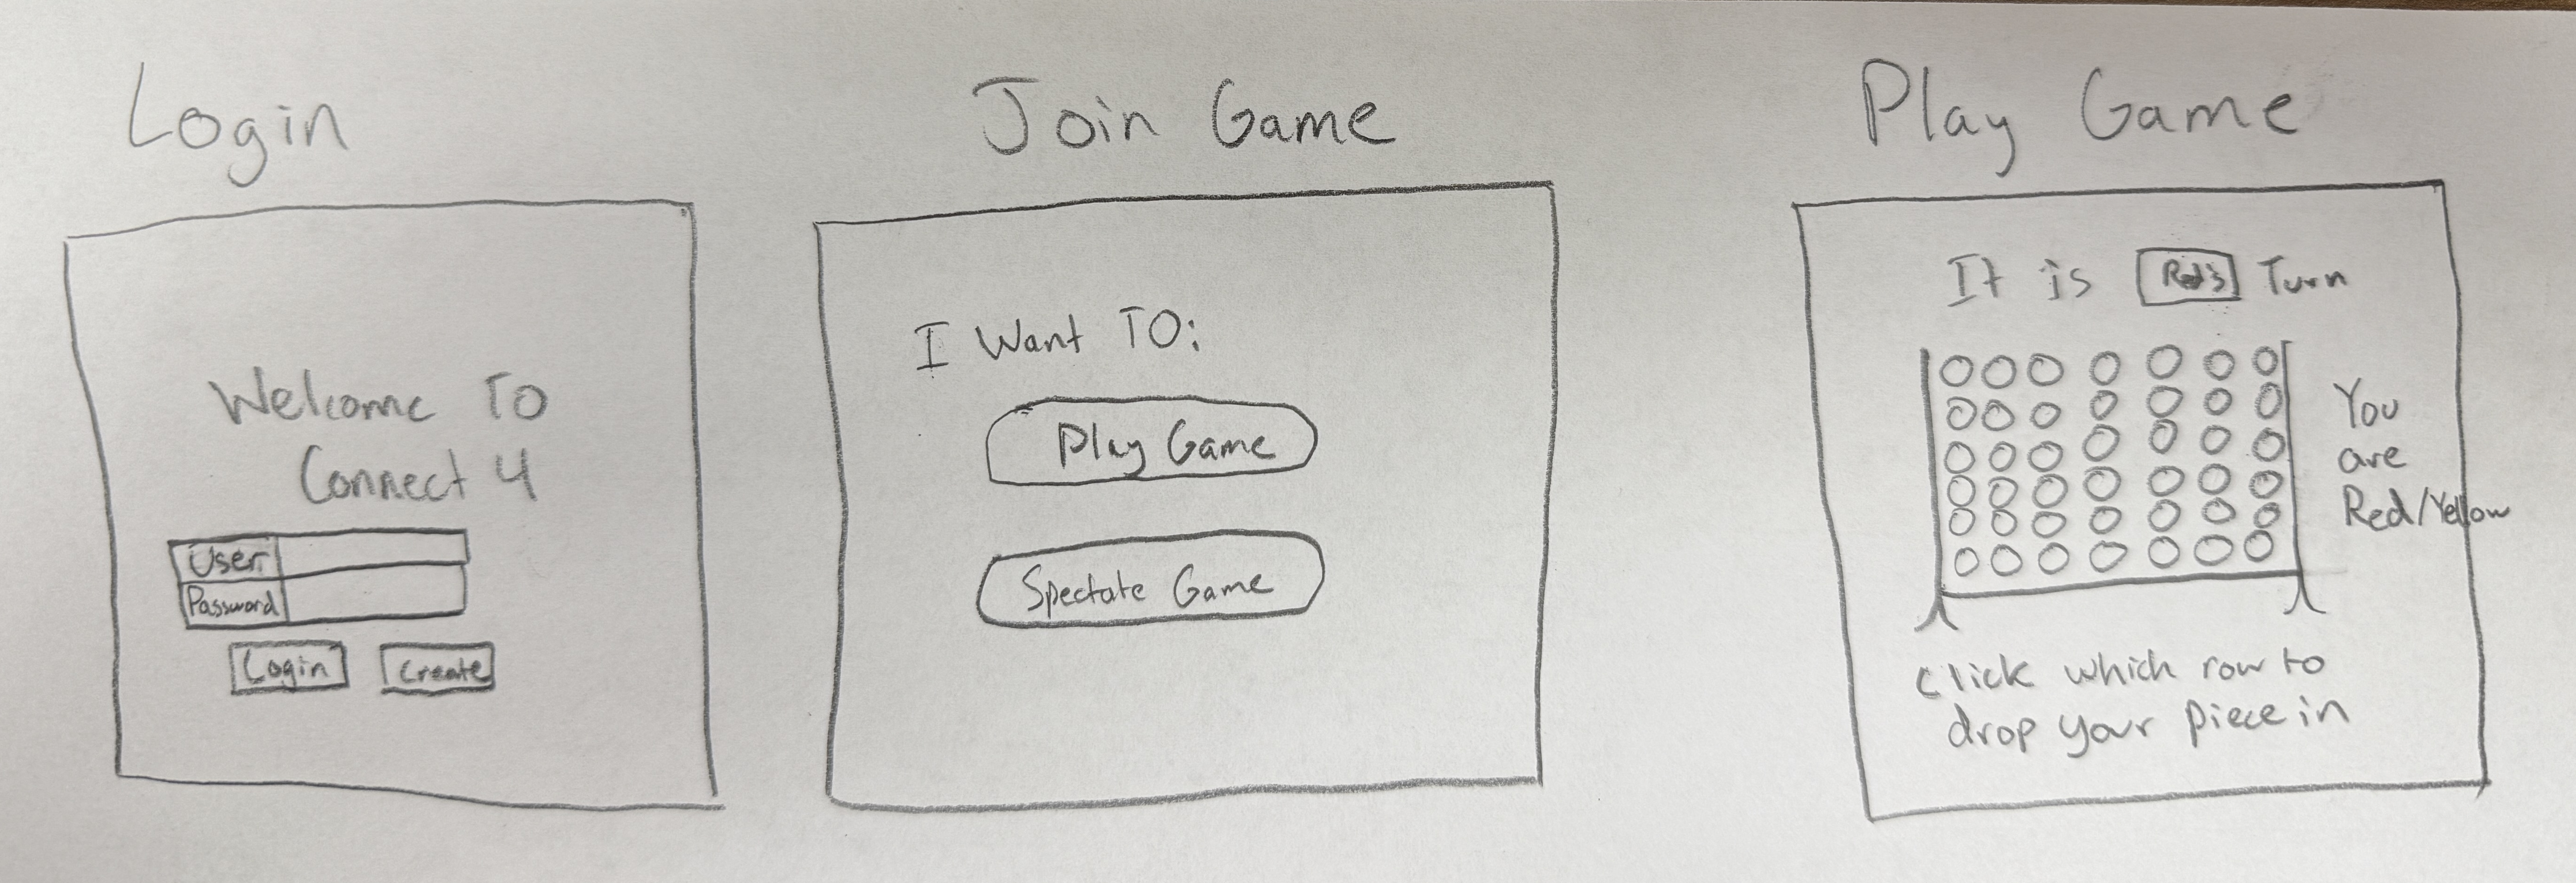 Login
Welcome To
Connect 4
User
Password
Login
Create
Join Game
I Want TO:
Play Game
Spectate Game
Play Game
It is Red's Turn
You
are
Red/Yellow
Click which row to
drop your piece in